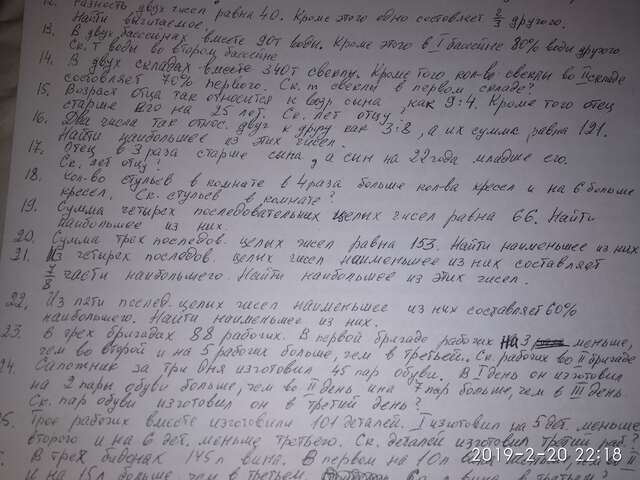 12. Разность двух чисел равна 40. Кроме этого одно составляет 2/3 другого.
Найти вычитаемое.
13. В двух бассейнах вместе 90т воды. Кроме этого в I бассейне 80% воды другого
Ск. т воды во втором бассейне
14. В двух складах вместе 340т свеклы. Кроме того, кол-во свеклы во II складе
составляет 70% первого. Ск. т свеклы в первом складе?
15. Возраст отца так относится к возр. сына как 9:4. Кроме того отец
старше его на 25 лет. Ск. лет отцу?
16. Два числа так относ. друг к другу как 3:8, а их сумма равна 121.
Найти наибольшее из этих чисел.
17. Отец в 3 раза старше сына, а сын на 22 года младше его.
Ск. лет отцу?
18. Кол-во стульев в комнате в 4 раза больше кол-ва кресел и на 6 больше
кресел. Ск. стульев в комнате?
19. Сумма четырех последовательных целых чисел равна 66. Найти
наибольшее из них.
20. Сумма трех последов. целых чисел равна 153. Найти наименьшее из них
21. Из четырех последов. целых чисел наименьшее из них составляет
7/8 части наибольшего. Найти наибольшее из этих чисел.
22. Из пяти послед. целых чисел наименьшее из них составляет 60%
наибольшего. Найти наименьшее из них.
23. В трех бригадах 88 рабочих. В первой бригаде рабочих на 3 меньше,
чем во второй и на 5 рабочих больше, чем в третьей. Ск. рабочих во II бригаде
24. Сапожник за три дня изготовил 45 пар обуви. В I день он изготовил
на 2 пары обуви больше, чем во II день и на 7 пар больше, чем в III день.
Ск. пар обуви изготовил он в третий день?
25. Трое рабочих вместе изготовили 101 деталей. I изготовил на 5 дет. меньше
второго и на 6 дет. меньше третьего. Ск. деталей изготовил третий раб.?
В трех бидонах 145л вина. В первом на 10л
и на 15л больше, чем в третьем. вина в третьем?
2019-2-20 22:18